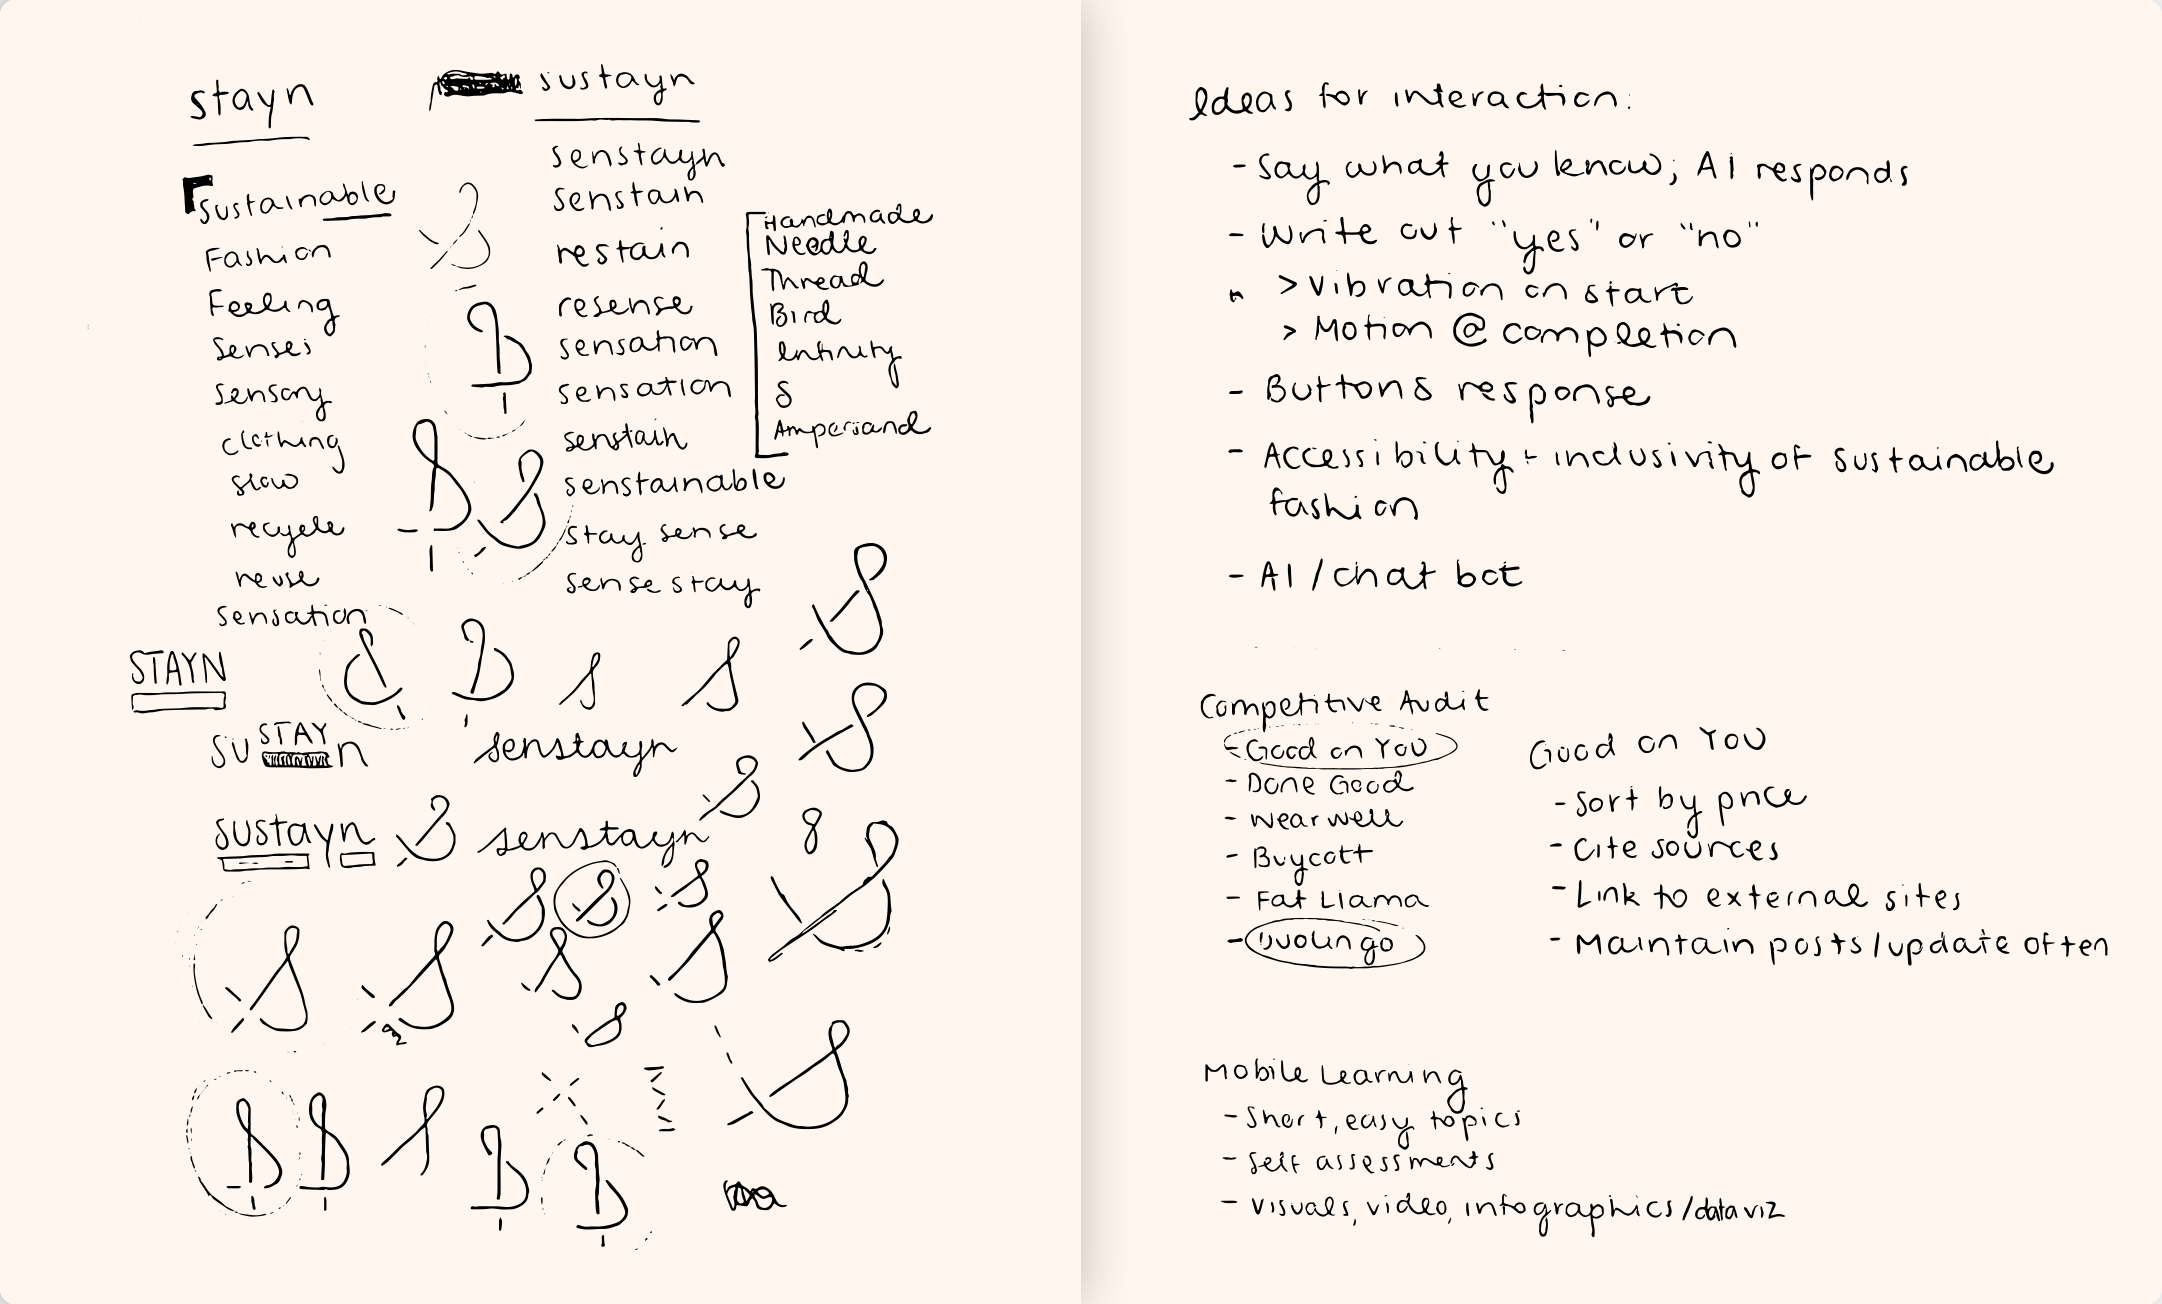 stayn
sustayn
Sustainable
Fashion
Feeling
Senses
Sensory
clothing
slow
recycle
reuse
Sensation
senstayn
senstain
restain
resense
sensation
sensation
senstain
senstainable
stay sense
sense stay
Handmade
Needle
Thread
Bird
Infinity
S
Ampersand
STAYN
SU STAY n
senstayn
sustayn
senstayn
8
Ideas for interaction:
- Say what you know; AI responds
- Write out "yes" or "no"
> Vibration on start
> Motion @ completion
- Buttons response
- Accessibility + inclusivity of sustainable
fashion
- AI / chat bot
Competitive Audit
- Good on You
- Done Good
- Wear well
- Buycott
- Fat Llama
- Duolingo
Good on You
- Sort by price
- Cite sources
- Link to external sites
- Maintain posts/update often
Mobile Learning
- Short, easy topics
- Self assessments
- Visuals, video, infographics/data viz